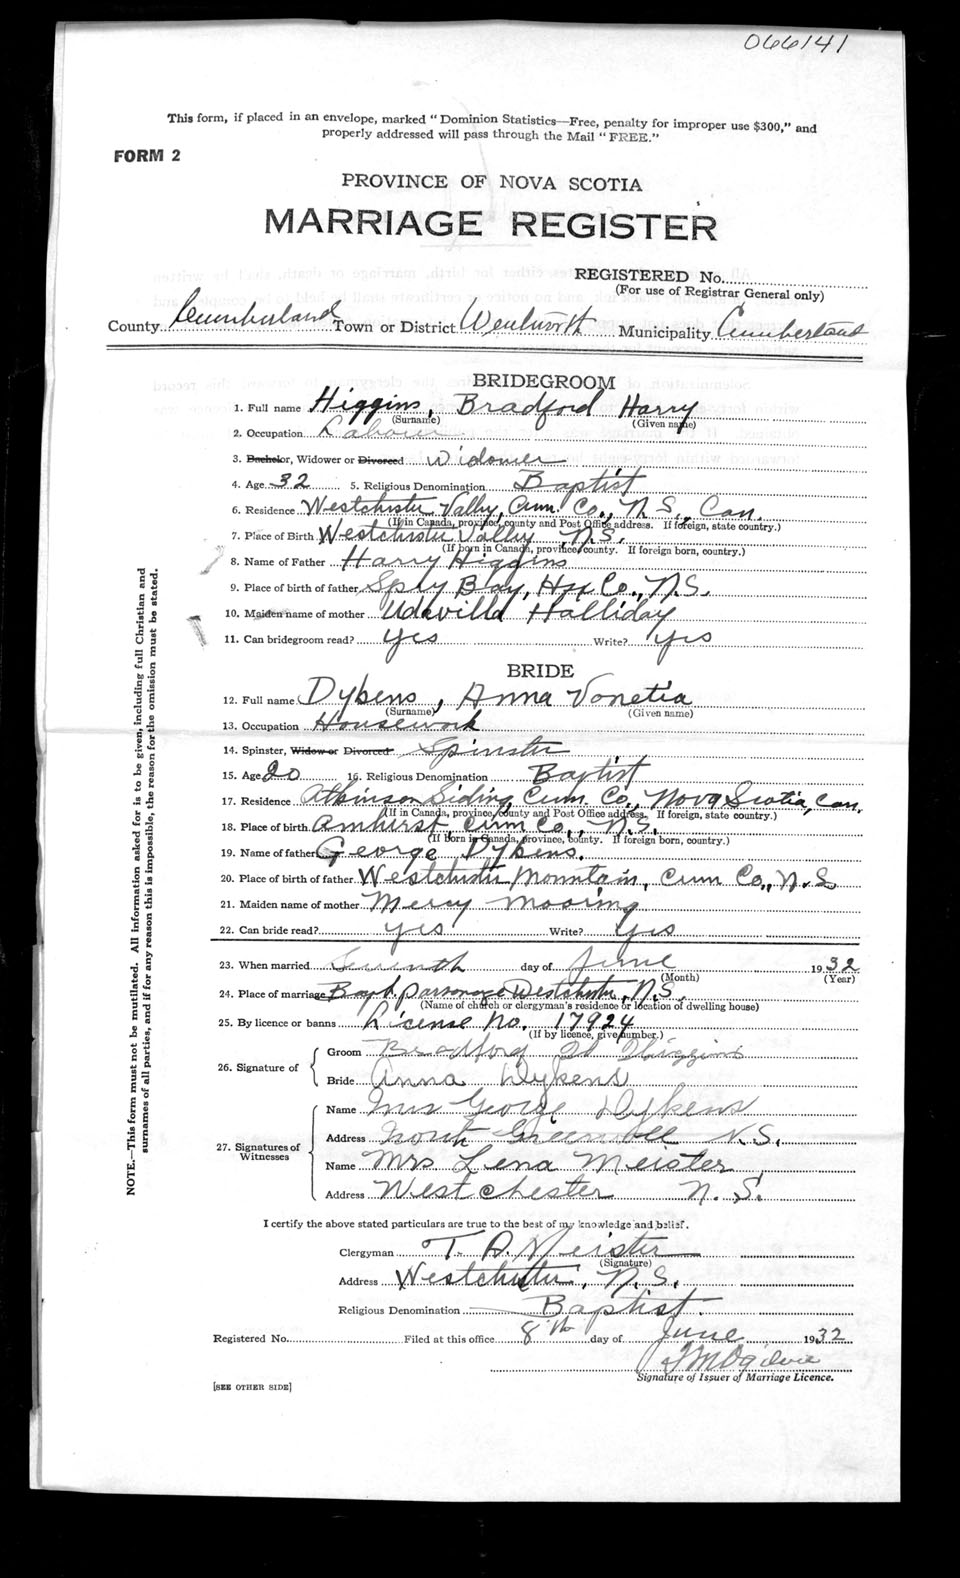 066141
This form, if placed in an envelope, marked "Dominion Statistics—Free, penalty for improper use $300," and
properly addressed will pass through the Mail "FREE."
FORM 2
PROVINCE OF NOVA SCOTIA
MARRIAGE REGISTER
REGISTERED No.
(For use of Registrar General only)
County Cumberland Town or District Wentworth Municipality Cumberland
BRIDEGROOM
1. Full name Higgins, Bradford Harry
(Surname) (Given name)
2. Occupation Labourer
3. Bachelor, Widower or Divorced Widower
4. Age 32 5. Religious Denomination Baptist
6. Residence Westchester Valley, Cum. Co., N.S., Can.
(If in Canada, province, county and Post Office address. If foreign, state country.)
7. Place of Birth Westchester Valley, N.S.
(If born in Canada, province, county. If foreign born, country.)
8. Name of Father Harry Higgins
9. Place of birth of father Spry Bay, Hx Co., N.S.
10. Maiden name of mother Udavilla Halliday
11. Can bridegroom read? yes Write? yes
BRIDE
12. Full name Dykens, Anna Vonetia
(Surname) (Given name)
13. Occupation Housework
14. Spinster, Widow or Divorced Spinster
15. Age 20 16. Religious Denomination Baptist
17. Residence Atkinson Siding, Cum. Co., Nova Scotia, Can.
(If in Canada, province, county and Post Office address. If foreign, state country.)
18. Place of birth Amherst, Cum Co., N.S.
(If born in Canada, province, county. If foreign born, country.)
19. Name of father George Dykens.
20. Place of birth of father Westchester Mountain, Cum Co., N.S
21. Maiden name of mother Mercy Mooring
22. Can bride read? yes Write? yes
23. When married Seventh day of June 1932
(Month) (Year)
24. Place of marriage Bapt. parsonage Westchester, N.S.
(Name of church or clergyman's residence or location of dwelling house)
25. By licence or banns License No. 17924
(If by licence, give number.)
26. Signature of
Groom Bradford Higgins
Bride Anna Dykens
27. Signatures of Witnesses
Name Mrs George Dykens
Address North Greenville N.S.
Name Mrs Lena Meister
Address Westchester N.S.
I certify the above stated particulars are true to the best of my knowledge and belief.
Clergyman T. A. Meister
(Signature)
Address Westchester, N.S.
Religious Denomination Baptist.
Registered No. Filed at this office 8th day of June 1932
Ogilvie
Signature of Issuer of Marriage Licence.
[SEE OTHER SIDE]
NOTE.—This form must not be mutilated. All information asked for is to be given, including full Christian and
surnames of all parties, and if for any reason this is impossible, the reason for the omission must be stated.